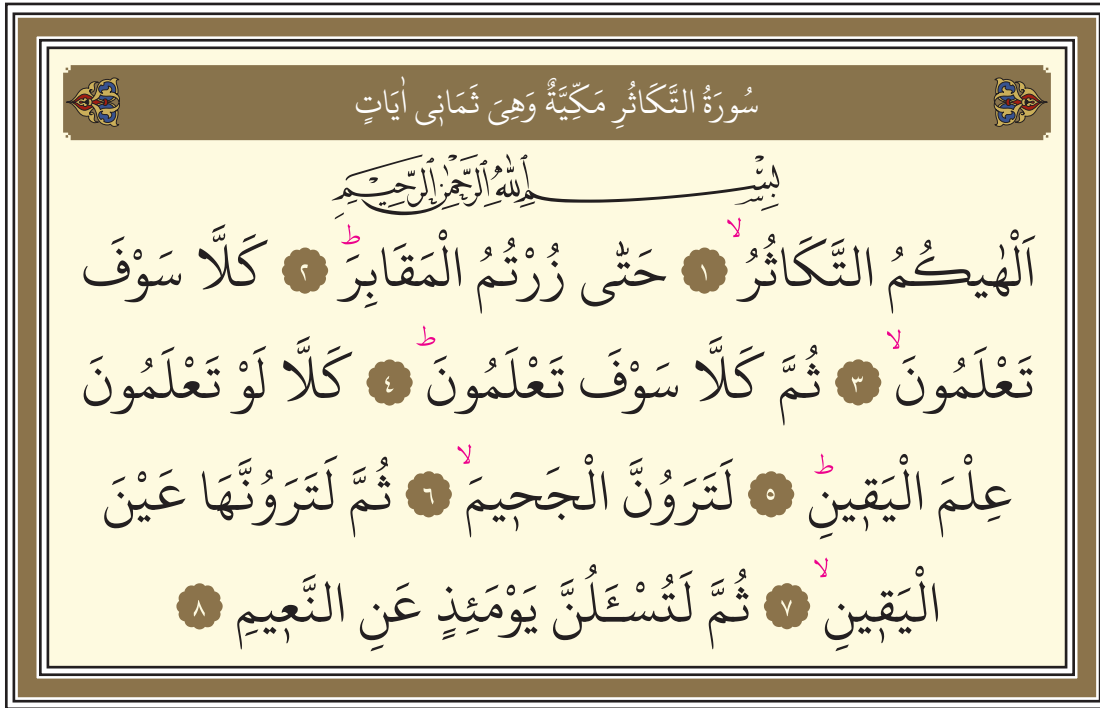 سُورَةُ التَّكَاثُرِ مَكِّيَّةٌ وَهِىَ ثَمَانٖى اٰيَاتٍ
بِسْمِ اللّٰهِ الرَّحْمٰنِ الرَّحٖيمِ
اَلْهٰيكُمُ التَّكَاثُرُۙ ١ حَتّٰى زُرْتُمُ الْمَقَابِرَۜ ٢ كَلَّا سَوْفَ
تَعْلَمُونَۙ ٣ ثُمَّ كَلَّا سَوْفَ تَعْلَمُونَۜ ٤ كَلَّا لَوْ تَعْلَمُونَ
عِلْمَ الْيَقٖينِۜ ٥ لَتَرَوُنَّ الْجَحٖيمَۙ ٦ ثُمَّ لَتَرَوُنَّهَا عَيْنَ
الْيَقٖينِۙ ٧ ثُمَّ لَتُسْـَٔلُنَّ يَوْمَئِذٍ عَنِ النَّعٖيمِ ٨